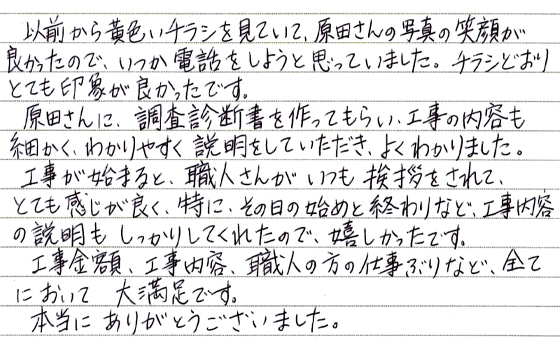 以前から黄色いチラシを見ていて、原田さんの写真の笑顔が
良かったので、いつか電話をしようと思っていました。チラシどおり
とても印象が良かったです。
原田さんに、調査診断書を作ってもらい、工事の内容も
細かく、わかりやすく説明をしていただき、よくわかりました。
工事が始まると、職人さんがいつも挨拶をされて、
とても感じが良く、特に、その日の始めと終わりなど、工事内容
の説明もしっかりしてくれたので、嬉しかったです。
工事金額、工事内容、職人の方の仕事ぶりなど、全て
において 大満足です。
本当にありがとうございました。